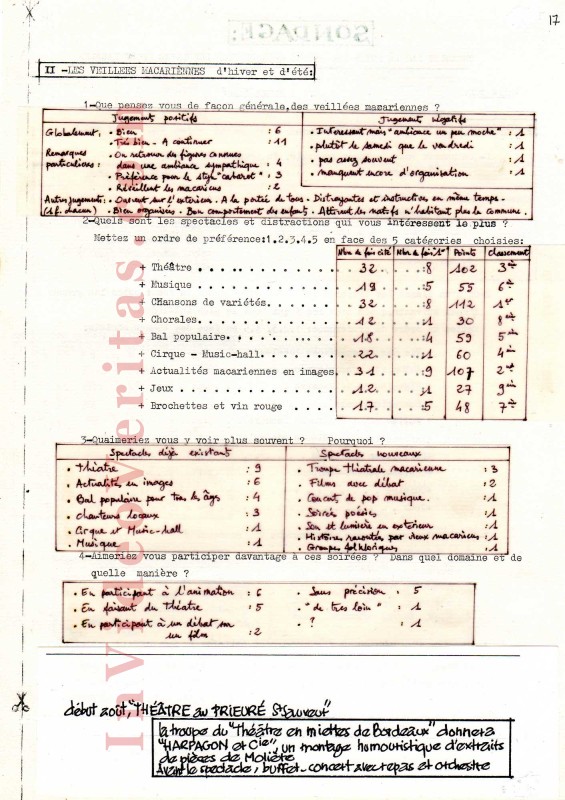 SONDAGE:
17
II -LES VEILLEES MACARIÈNNES d'hiver et d'été:
1-Que pensez vous de façon générale,des veillées macariennes ?
Jugement positifs
Jugement Négatifs
Globalement: . Bien : 6
. Très bien - A continuer : 11
Remarques particulières : . On retrouve des figures connues dans une ambiance sympathique : 4
. Préférence pour le style "cabaret" : 3
. Réveillent les macariens : 2
. Interessant mais "ambiance un peu moche" : 1
. plutôt le samedi que le vendredi : 1
. pas assez souvent : 1
. manquent encore d'organisation : 1
Autres jugements: . Ouvrent sur l'extérieur. A la portée de tous. Distrayantes et instructives en même temps.
(1 f. chacun) . Bien organisées. Bon comportement des enfants. Attirent les natifs n'habitant plus la commune.
2-Quels sont les spectacles et distractions qui vous intéressent le plus ?
Mettez un ordre de préférence:1.2.3.4.5 en face des 5 catégories choisies:
Nbre de fois cité Nbre de fois 1er Points Classement
+ Théâtre 32 :8 102 3e
+ Musique 19 :5 55 6e
+ CHansons de variétés. 32 :8 112 1er
+ Chorales. 12 :1 30 8e
+ Bal populaire. 18 :4 59 5e
+ Cirque - Music-hall. 22 :1 60 4e
+ Actualités macariennes en images. 31 :9 107 2e
+ Jeux 12 :1 27 9e
+ Brochettes et vin rouge 17 :5 48 7e
3-Quaimeriez vous y voir plus souvent ? Pourquoi ?
Spectacles déjà existant
. théâtre : 9
. Actualités en images : 6
. Bal populaire pour tous les âges : 4
. chanteurs locaux : 3
. Cirque et Music-hall : 1
. Musique : 1
Spectacles nouveaux
. Troupe théatrale macarienne : 3
. Films avec débat : 2
. Concert de pop musique. : 1
. Soirée poésies : 1
. Son et lumière en extérieur : 1
. Histoires racontées par vieux macariens : 1
. Groupes folkloriques : 1
4-Aimeriez vous participer davantage à ces soirées ? Dans quel domaine et de
quelle manière ?
. En participant à l'animation : 6
. En faisant du Théatre : 5
. En participant à un débat sur
un film : 2
. Sans précision : 5
. "de très loin" : 1
. ? : 1
début août, "THÉÂTRE au PRIEURÉ St Sauveur"
la troupe du "Théâtre en miettes de Bordeaux" donnera
"HARPAGON et Cie", un montage humouristique d'extraits
de pièces de Molière
Avant le spectacle, buffet-concert avec repas et orchestre
Invidcoveritas